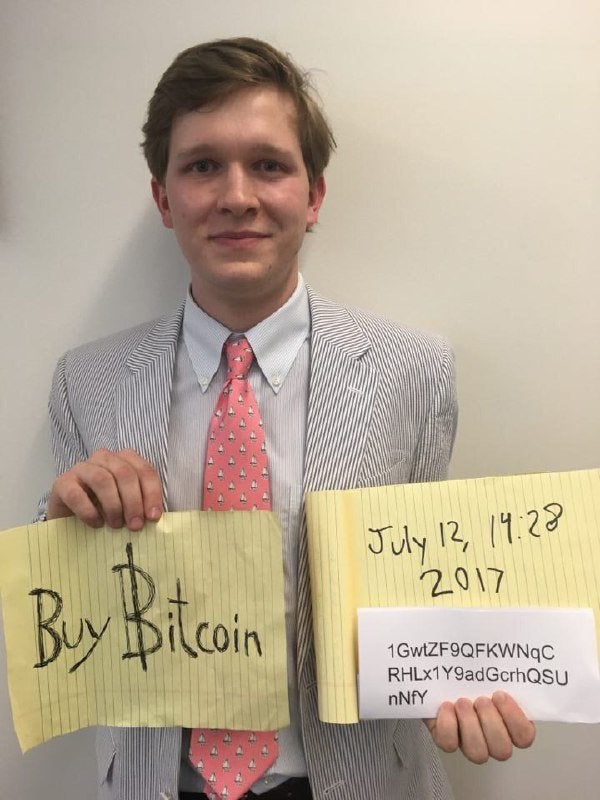 Buy Bitcoin
July 12, 14:28
2017
1GwtZF9QFKWNqC
RHLx1Y9adGcrhQSU
nNfY